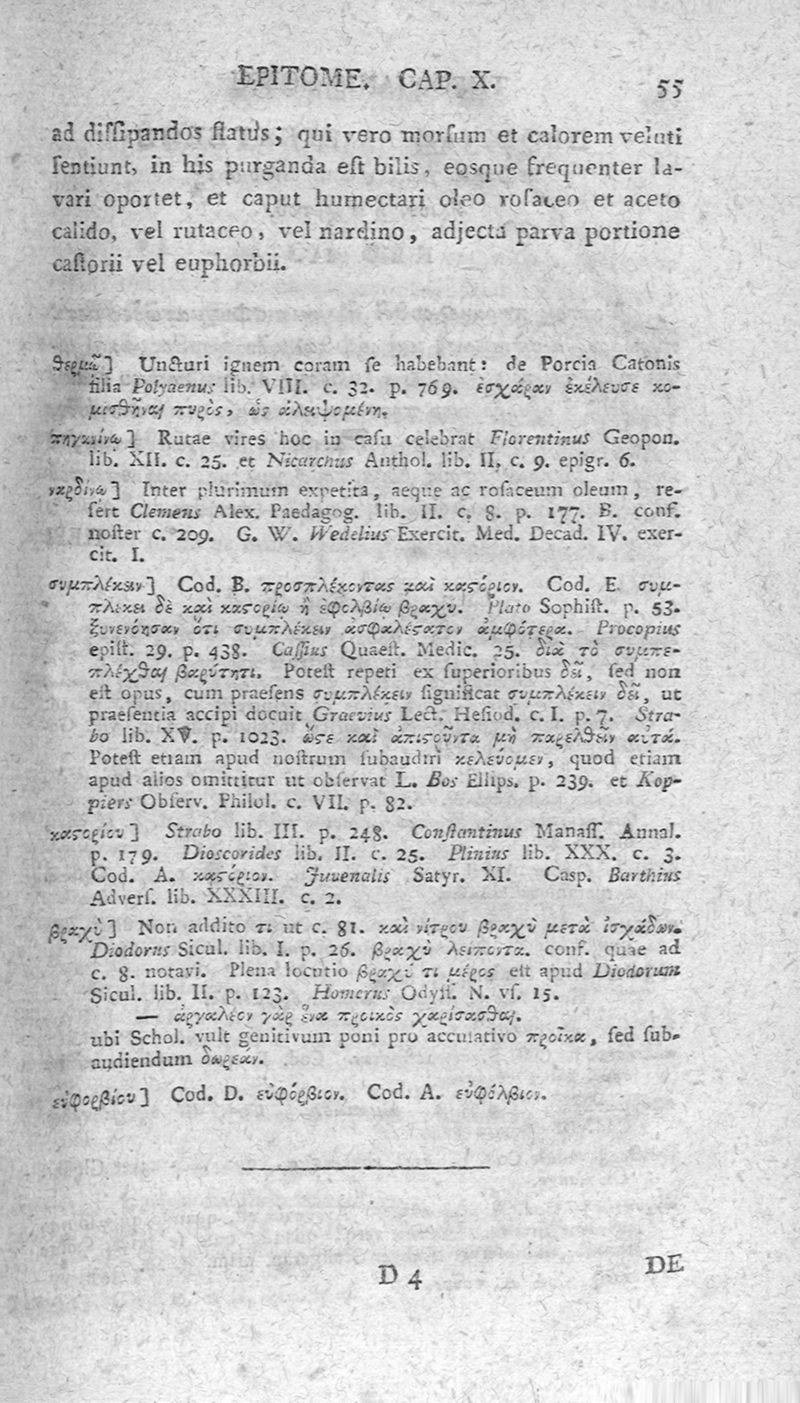 EPITOME. CAP. X. 55
ad diſſipandos flatus; qui vero morſum et calorem veluti
ſentiunt, in his purganda eſt bilis, eosque frequenter la-
vari oportet, et caput humectari oleo roſaceo et aceto
calido, vel rutaceo, vel nardino, adjecta parva portione
caſtorii vel euphorbii.
θερμῶ] Uncturi ignem coram ſe habebant: de Porcia Catonis
filia Polyaenus lib. VIII. c. 32. p. 769. ἐσχάραν ἐκέλευσε κο-
μισθῆναι πυρὸς, ὡς ἀλειψομένη.
πηγανίνω] Rutae vires hoc in caſu celebrat Florentinus Geopon.
lib. XII. c. 25. et Nicarchus Anthol. lib. II. c. 9. epigr. 6.
ναρδίνω] Inter plurimum expetita, aeque ac roſaceum oleum, re-
fert Clemens Alex. Paedagog. lib. II. c. 8. p. 177. B. conf.
noſter c. 209. G. W. Wedelius Exercit. Med. Decad. IV. exer-
cit. I.
συμπλέκειν] Cod. B. προσπλέκοντας καὶ καςόριον. Cod. E. συμ-
πλεκει δὲ καὶ καςορίω ἢ ἐφολβίω βραχυ. Plato Sophiſt. p. 53.
ξυνενόησαν ὅτι συμπλέκειν ἀσφαλέςατον ἀμφότερα. Procopius
epiſt. 29. p. 438. Caſſius Quaeſt. Medic. 25. διὰ τὸ συμπε-
πλέχθαι βαρύτητι. Poteſt repeti ex ſuperioribus δεῖ, ſed non
eſt opus, cum praeſens συμπλέκειν ſignificat συμπλέκειν δεῖ, ut
praeſentia accipi docuit Graevius Lect. Heſiod. c. I. p. 7. Stra-
bo lib. XV. p. 1023. ὥςε καὶ ἀπιςοῦντα μὴ παρελθεῖν αὐτά.
Poteſt etiam apud noſtrum ſubaudiri κελεύομεν, quod etiam
apud alios omittitur ut obſervat L. Bos Ellips. p. 239. et Kop-
piers Obſerv. Philol. c. VII. p. 82.
καςορίου] Strabo lib. III. p. 248. Conſtantinus Manaſſ. Annal.
p. 179. Dioscorides lib. II. c. 25. Plinius lib. XXX. c. 3.
Cod. A. καςόριον. Juvenalis Satyr. XI. Casp. Barthius
Adverſ. lib. XXXIII. c. 2.
βραχὺ] Non addito τι ut c. 81. καὶ νίτρου βραχὺ μετὰ ἰσχάδων.
Diodorus Sicul. lib. I. p. 26. βραχὺ λείποντα. conf. quae ad
c. 8. notavi. Plena locutio βραχύ τι μέρος eſt apud Diodorum
Sicul. lib. II. p. 123. Homerus Odyſſ. N. vſ. 15.
— ἀργαλέον γὰρ ἕνα προικὸς χαρίσασθαι.
ubi Schol. vult genitivum poni pro accuſativo προῖκα, ſed ſub-
audiendum δωρεαν.
εὐφορβίου] Cod. D. εὐφόρβιον. Cod. A. εὐφόλβιον.
D 4 DE